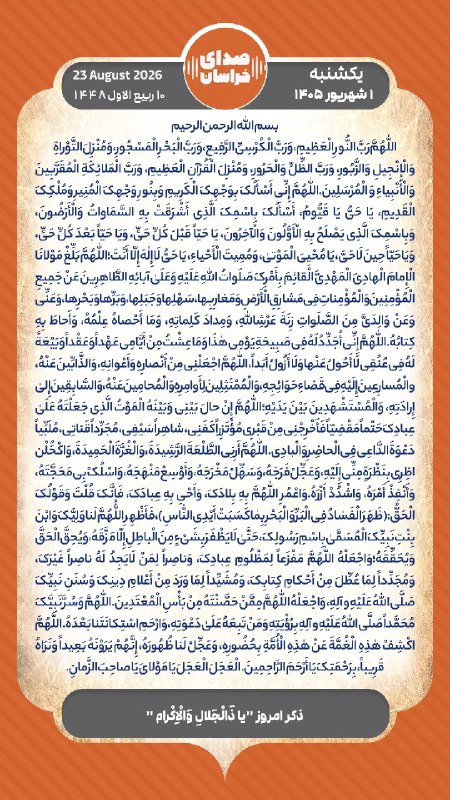 صدای
خراسان
یکشنبه
۱ شهریور ۱۴۰۵
23 August 2026
۱۰ ربیع الاول ۱۴۴۸
بسم الله الرحمن الرحیم
اللّهُمَّ رَبَّ النُّورِ الْعَظِیمِ، وَرَبَّ الْکُرْسِیِّ الرَّفِیعِ، وَرَبَّ الْبَحْرِ الْمَسْجُورِ، وَمُنْزِلَ التَّوْراةِ
وَالْإِنْجِیلِ وَالزَّبُورِ، وَرَبَّ الظِّلِّ وَالْحَرُورِ، وَمُنْزِلَ الْقُرْآنِ الْعَظِیمِ، وَرَبَّ الْمَلائِکَةِ الْمُقَرَّبِینَ
وَالْأَنْبِیاءِ وَالْمُرْسَلِینَ. اللّهُمَّ إِنِّی أَسْأَلُکَ بِوَجْهِکَ الْکَرِیمِ وَبِنُورِ وَجْهِکَ الْمُنِیرِ وَمُلْکِکَ
الْقَدِیمِ، یَا حَیُّ یَا قَیُّومُ، أَسْأَلُکَ بِاسْمِکَ الَّذِی أَشْرَقَتْ بِهِ السَّمَاوَاتُ وَالْأَرَضُونَ،
وَبِاسْمِکَ الَّذِی یَصْلَحُ بِهِ الْأَوَّلُونَ وَالْآخِرُونَ، یَا حَیّاً قَبْلَ کُلِّ حَیٍّ، وَیَا حَیّاً بَعْدَ کُلِّ حَیٍّ،
وَیَا حَیّاً حِینَ لَا حَیَّ، یَا مُحْیِیَ الْمَوْتىٰ، وَمُمِیتَ الْأَحْیاءِ، یَا حَیُّ لَاإِلٰهَ إِلّا أَنْتَ؛ اللّهُمَّ بَلِّغْ مَوْلانَا
الْإِمامَ الْهادِیَ الْمَهْدِیَّ الْقائِمَ بِأَمْرِکَ صَلَواتُ اللهِ عَلَیْهِ وَعَلىٰ آبائِهِ الطَّاهِرِینَ عَنْ جَمِیعِ
الْمُؤْمِنِینَ وَالْمُؤْمِناتِ فِی مَشارِقِ الْأَرْضِ وَمَغارِبِها، سَهْلِها وَجَبَلِها، وَبَرِّها وَبَحْرِها، وَعَنِّی
وَعَنْ وَالِدَیَّ مِنَ الصَّلَواتِ زِنَةَ عَرْشِ اللهِ، وَمِدادَ کَلِماتِهِ، وَمَا أَحْصاهُ عِلْمُهُ، وَأَحاطَ بِهِ
کِتابُهُ. اللّهُمَّ إِنِّی أُجَدِّدُ لَهُ فِی صَبِیحَةِ یَوْمِی هٰذا وَمَا عِشْتُ مِنْ أَیَّامِی عَهْداً وَعَقْداً وَبَیْعَةً
لَهُ فِی عُنُقِی، لَا أَحُولُ عَنْها وَلَا أَزُولُ أَبَداً. اللّهُمَّ اجْعَلْنِی مِنْ أَنْصارِهِ وَأَعْوانِهِ، وَالذَّابِّینَ عَنْهُ،
وَالْمُسارِعِینَ إِلَیْهِ فِی قَضاءِ حَوَائِجِهِ، وَالْمُمْتَثِلِینَ لِأَوامِرِهِ وَالْمُحامِینَ عَنْهُ، وَالسَّابِقِینَ إِلىٰ
إِرادَتِهِ، وَالْمُسْتَشْهَدِینَ بَیْنَ یَدَیْهِ؛ اللّهُمَّ إِنْ حالَ بَیْنِی وَبَیْنَهُ الْمَوْتُ الَّذِی جَعَلْتَهُ عَلىٰ
عِبادِکَ حَتْماً مَقْضِیّاً فَأَخْرِجْنِی مِنْ قَبْرِی مُؤْتَزِراً کَفَنِی، شاهِراً سَیْفِی، مُجَرِّداً قَناتِی، مُلَبِّیاً
دَعْوَةَ الدَّاعِی فِی الْحاضِرِ وَالْبادِی. اللّهُمَّ أَرِنِی الطَّلْعَةَ الرَّشِیدَةَ، وَالْغُرَّةَ الْحَمِیدَةَ، وَاکْحُلْ ناظِرِی بِنَظْرَةٍ مِنِّی إِلَیْهِ، وَعَجِّلْ فَرَجَهُ، وَسَهِّلْ مَخْرَجَهُ، وَأَوْسِعْ مَنْهَجَهُ، وَاسْلُکْ بِی مَحَجَّتَهُ،
وَأَنْفِذْ أَمْرَهُ، وَاشْدُدْ أَزْرَهُ. وَاعْمُرِ اللّهُمَّ بِهِ بِلادَکَ، وَأَحْیِ بِهِ عِبادَکَ، فَإِنَّکَ قُلْتَ وَقَوْلُکَ
الْحَقُّ: (ظَهَرَ الْفَسادُ فِی الْبَرِّ وَالْبَحْرِ بِمَا کَسَبَتْ أَیْدِی النَّاسِ)، فَأَظْهِرِ اللّهُمَّ لَنا وَلِیَّکَ وَابْنَ
بِنْتِ نَبِیِّکَ الْمُسَمَّىٰ بِاسْمِ رَسُولِکَ، حَتَّىٰ لَا یَظْفَرَ بِشَیْءٍ مِنَ الْباطِلِ إِلّا مَزَّقَهُ، وَیُحِقَّ الْحَقَّ
وَیُحَقِّقَهُ؛ وَاجْعَلْهُ اللّهُمَّ مَفْزَعاً لِمَظْلُومِ عِبادِکَ، وَناصِراً لِمَنْ لَا یَجِدُ لَهُ ناصِراً غَیْرَکَ،
وَمُجَدِّداً لِمَا عُطِّلَ مِنْ أَحْکامِ کِتابِکَ، وَمُشَیِّداً لِمَا وَرَدَ مِنْ أَعْلامِ دِینِکَ وَسُنَنِ نَبِیِّکَ
صَلَّى اللهُ عَلَیْهِ وَآلِهِ، وَاجْعَلْهُ اللّهُمَّ مِمَّنْ حَصَّنْتَهُ مِنْ بَأْسِ الْمُعْتَدِینَ. اللّهُمَّ وَسُرَّ نَبِیَّکَ
مُحَمَّداً صَلَّى اللهُ عَلَیْهِ وَآلِهِ بِرُؤْیَتِهِ وَمَنْ تَبِعَهُ عَلىٰ دَعْوَتِهِ، وَارْحَمِ اسْتِکانَتَنا بَعْدَهُ. اللّهُمَّ
اکْشِفْ هٰذِهِ الْغُمَّةَ عَنْ هٰذِهِ الْأُمَّةِ بِحُضُورِهِ، وَعَجِّلْ لَنا ظُهُورَهُ، إِنَّهُمْ یَرَوْنَهُ بَعِیداً وَنَرَاهُ
قَرِیباً، بِرَحْمَتِکَ یَا أَرْحَمَ الرَّاحِمِینَ. الْعَجَلَ الْعَجَلَ یَا مَوْلایَ یَا صاحِبَ الزَّمانِ.
ذکر امروز "یا ذَالْجَلالِ وَالْاِکْرام "